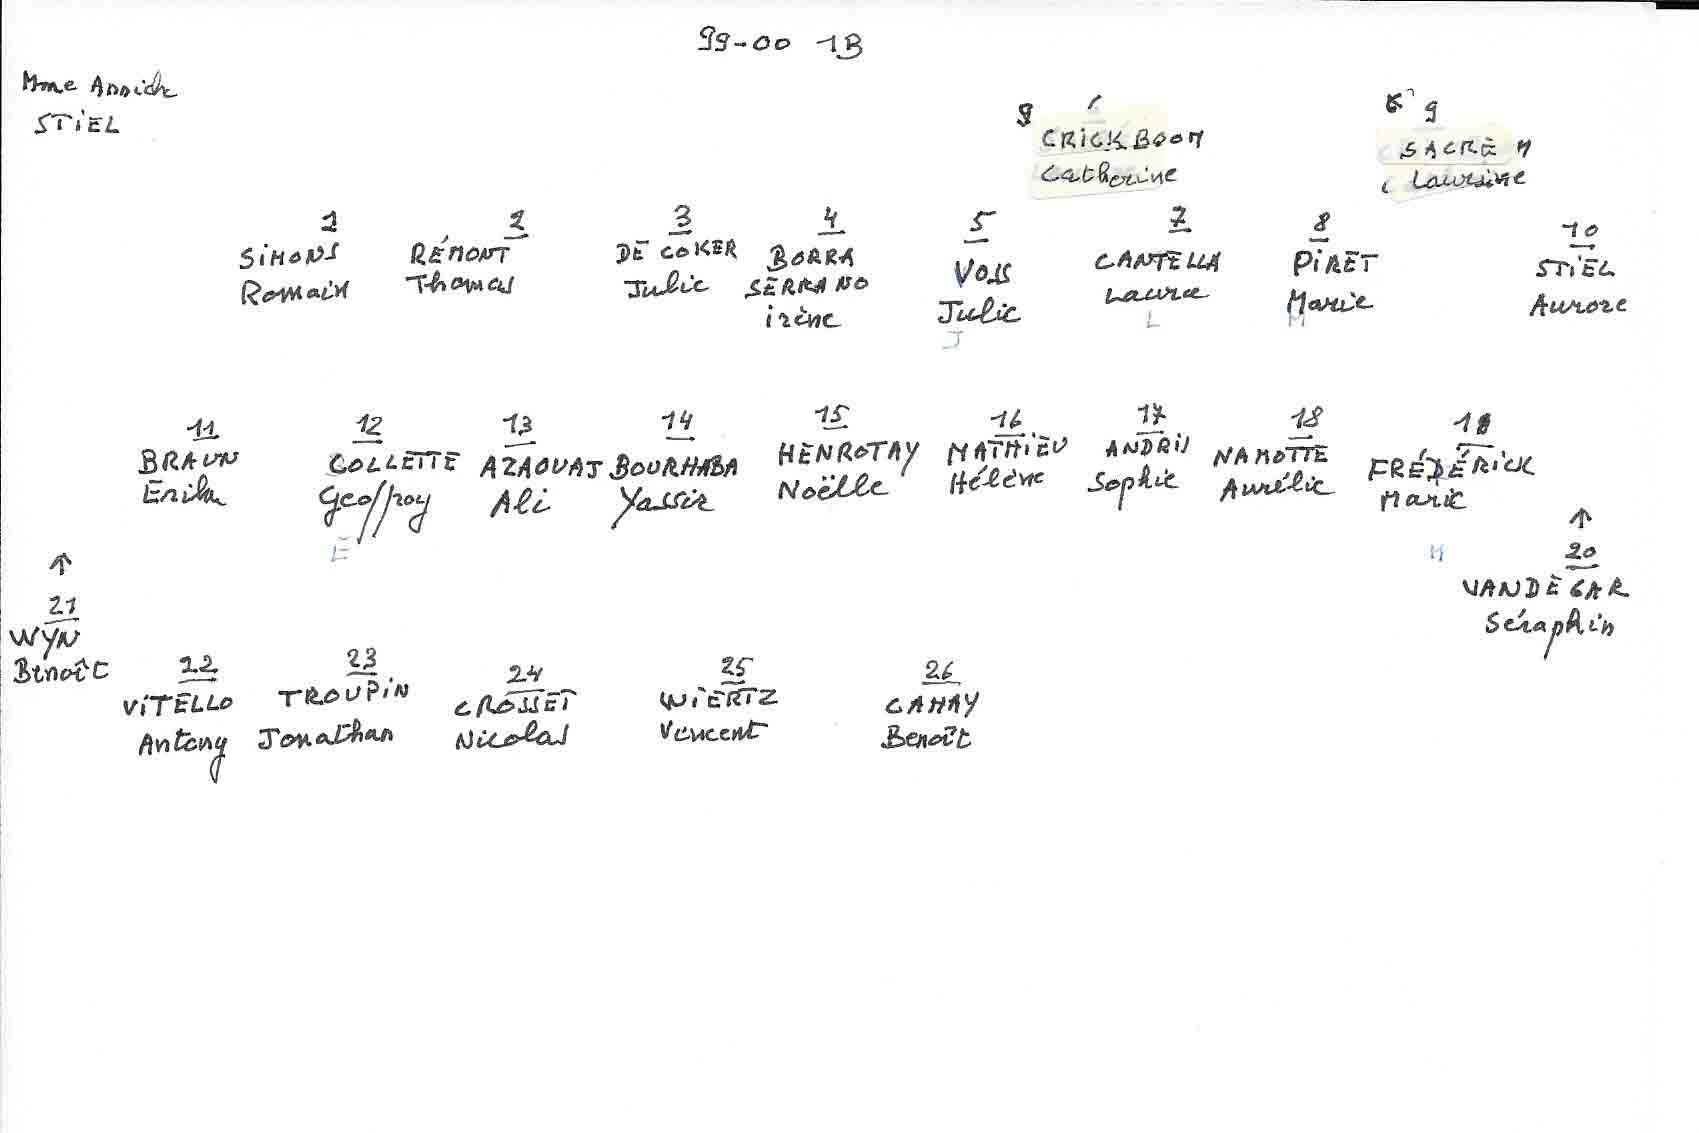 99-00 1B
Mme Annick
STIEL
9 6
CRICKBOOM
Catherine
6 9
SACRÉ
Laurine
1 2 3 4 5 7 8 10
SIMONS RÉMONT DE COKER BORRA VOSS CANTELLA PIRET STIEL
Romain Thomas Julie SERRANO Julie Laura Marie Aurore
irène
J L M
11 12 13 14 15 16 17 18 19
BRAUN COLLETTE AZAOUAJ BOURHABA HENROTAY MATHIEU ANDRIS NAMOTTE FRÉDÉRICK
Erika Geoffroy Ali Yassir Noëlle Hélène Sophie Aurélie Marie
E M
↑ 20
VANDEGAR
Séraphin
↑ 21
WYN
Benoît
22 23 24 25 26
VITELLO TROUPIN CROSSET WIERTZ CAHAY
Antony Jonathan Nicolas Vincent Benoît